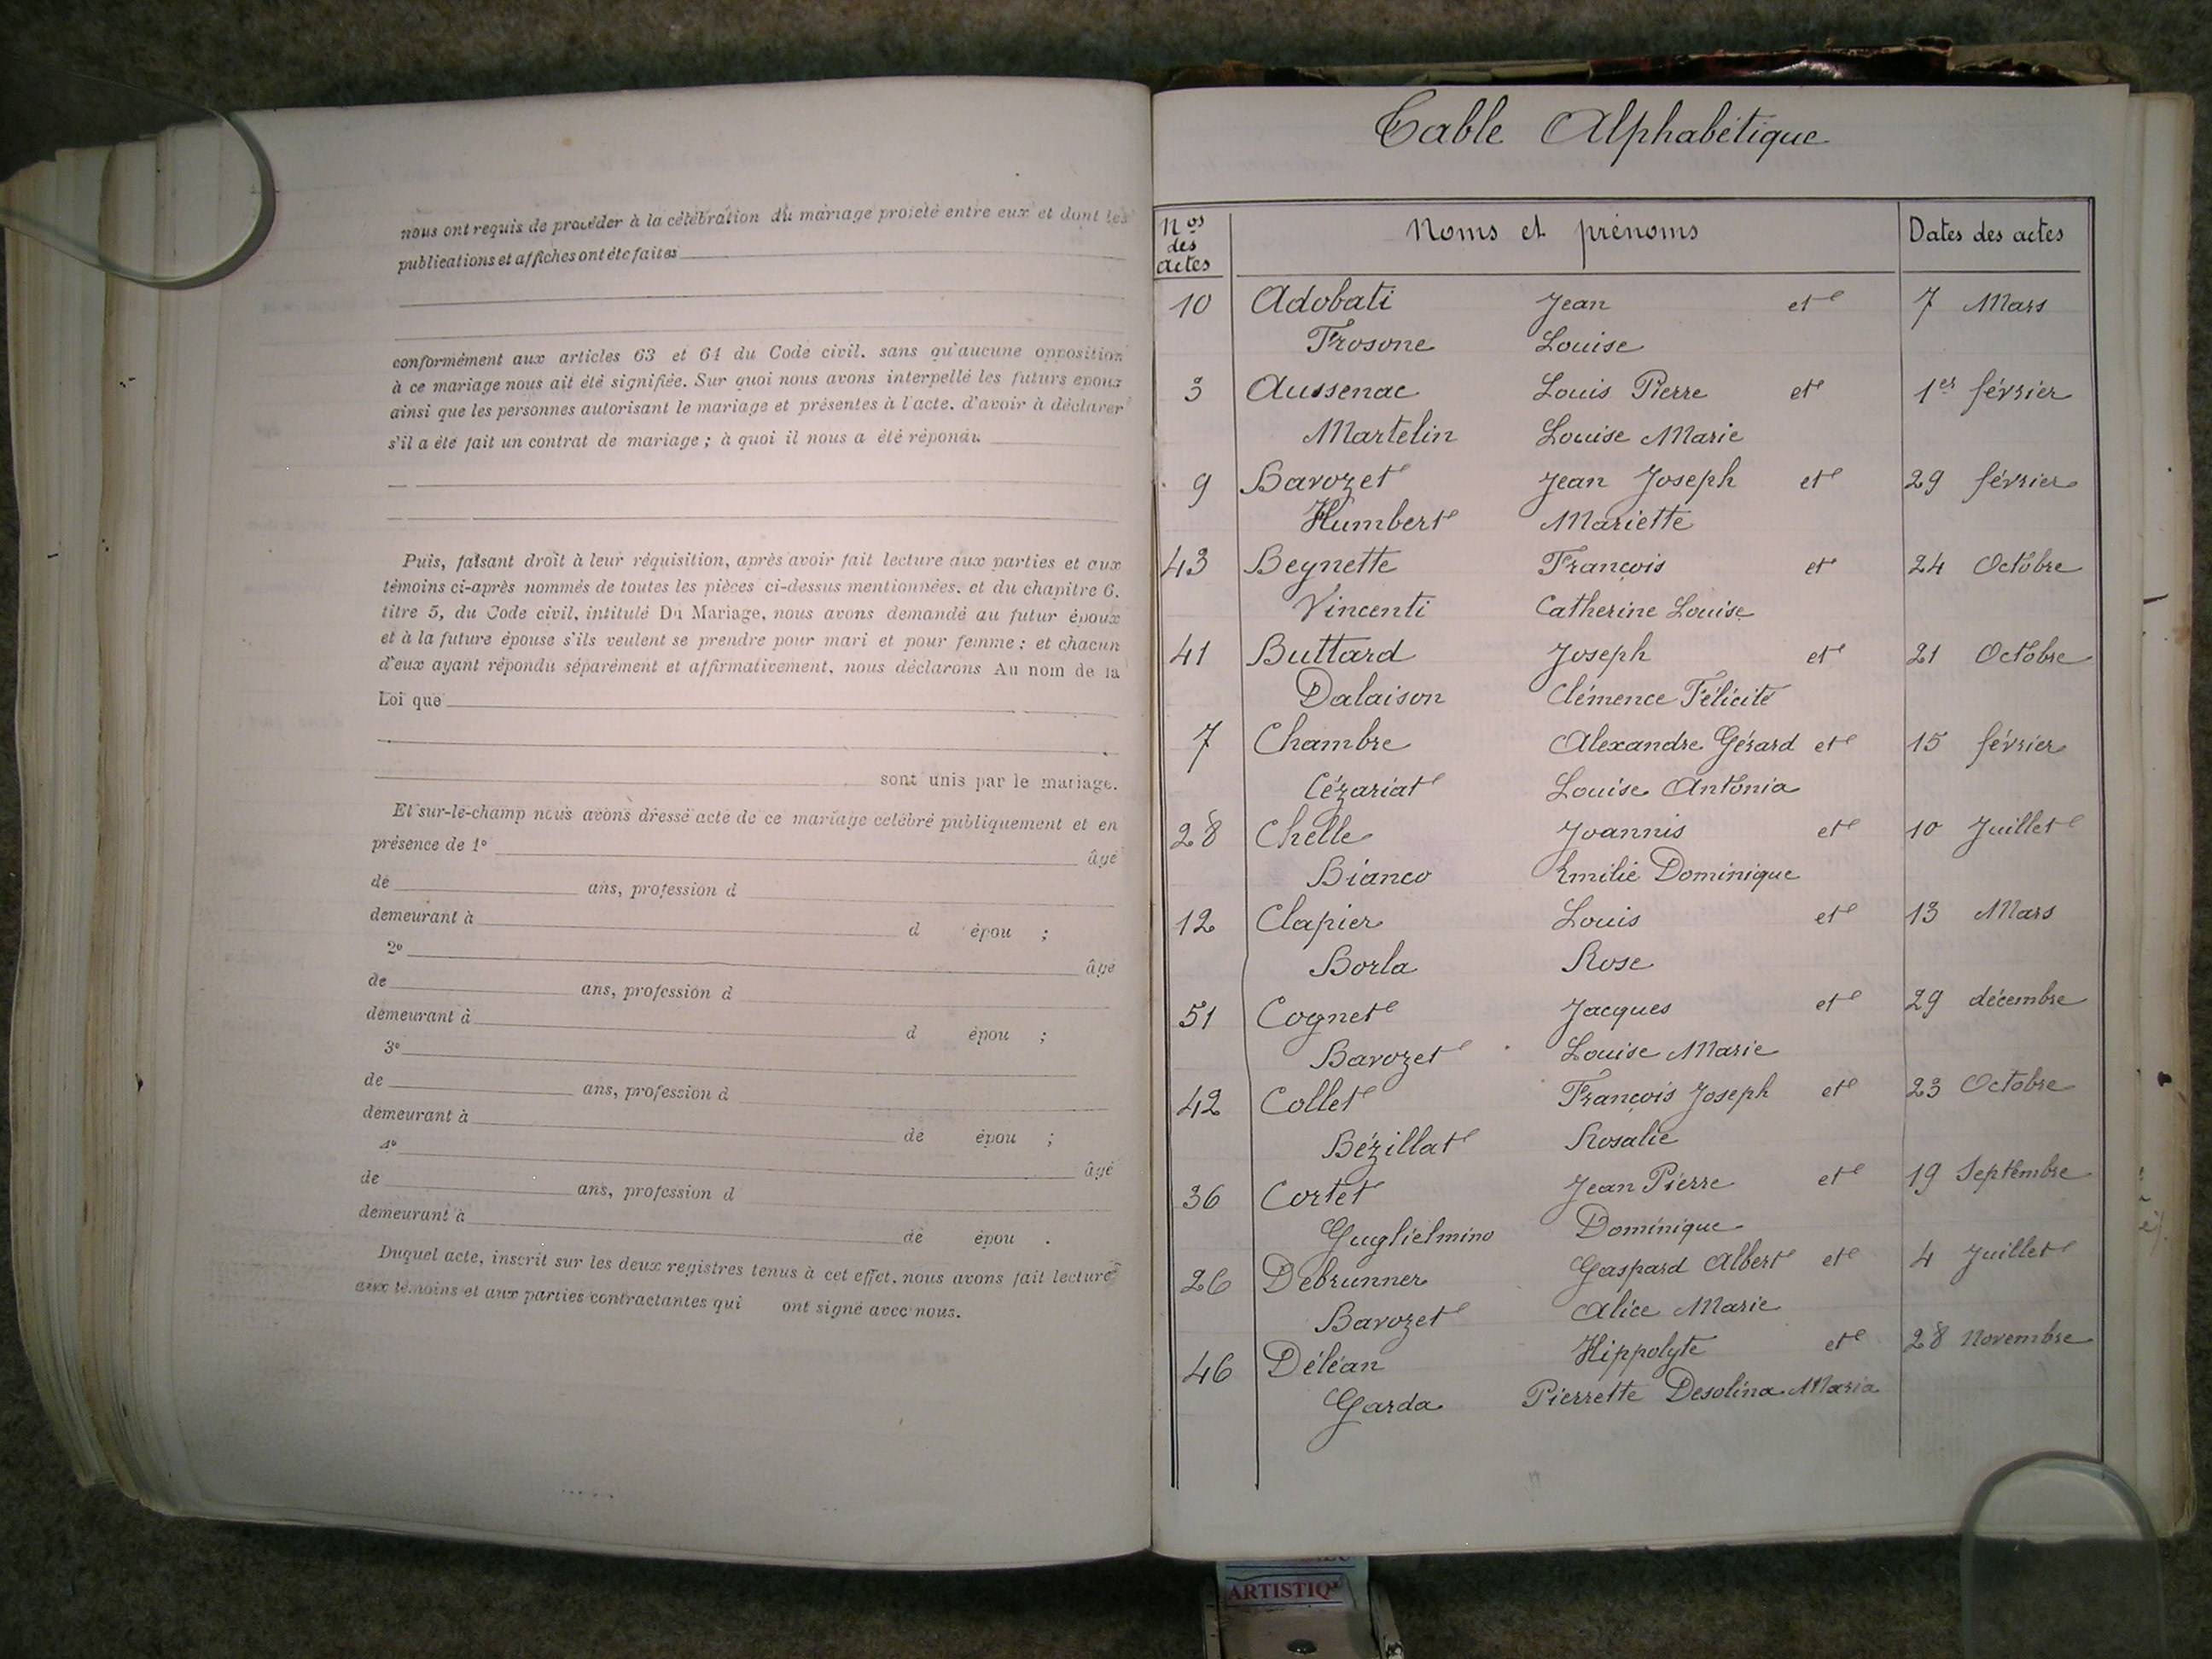 nous ont requis de procéder à la célébration du mariage projeté entre eux et dont les
publications et affiches ont été faites
conformément aux articles 63 et 64 du Code civil, sans qu'aucune opposition
à ce mariage nous ait été signifiée. Sur quoi nous avons interpellé les futurs epoux
ainsi que les personnes autorisant le mariage et présentes à l'acte, d'avoir à déclarer
s'il a été fait un contrat de mariage ; à quoi il nous a été répondu
Puis, faisant droit à leur réquisition, après avoir fait lecture aux parties et aux
témoins ci-après nommés de toutes les pièces ci-dessus mentionnées, et du chapitre 6,
titre 5, du Code civil, intitulé Du Mariage, nous avons demandé au futur époux
et à la future épouse s'ils veulent se prendre pour mari et pour femme ; et chacun
d'eux ayant répondu séparément et affirmativement, nous déclarons Au nom de la
Loi que
sont unis par le mariage.
Et sur-le-champ nous avons dressé acte de ce mariage célébré publiquement et en
présence de 1º âgé
de ans, profession d
demeurant à d épou ;
2º âgé
de ans, profession d
demeurant à d épou ;
3º
de ans, profession d
demeurant à de épou ;
4º âgé
de ans, profession d
demeurant à de épou .
Duquel acte, inscrit sur les deux registres tenus à cet effet, nous avons fait lecture
aux témoins et aux parties contractantes qui ont signé avec nous.
Table Alphabétique
Nos des actes Noms et prénoms Dates des actes
10 Adobati Jean et 7 Mars
Frosone Louise
3 Aussenac Louis Pierre et 1er février
Martelin Louise Marie
9 Bavozet Jean Joseph et 29 février
Humbert Mariette
43 Beynette François et 24 Octobre
Vincenti Catherine Louise
41 Buttard Joseph et 21 Octobre
Dalaison Clémence Félicité
7 Chambre Alexandre Gérard et 15 février
Cézariat Louise Antonia
28 Chelle Joannis et 10 Juillet
Bianco Emilie Dominique
12 Clapier Louis et 13 Mars
Borla Rose
51 Cognet Jacques et 29 décembre
Bavozet Louise Marie
42 Collet François Joseph et 23 Octobre
Bézillat Rosalie
36 Cortet Jean Pierre et 19 Septembre
Guglielmino Dominique
26 Debrunner Gaspard Albert et 4 Juillet
Bavozet Alice Marie
46 Déléan Hippolyte et 28 Novembre
Garda Pierrette Desolina Maria
ARTISTIQ